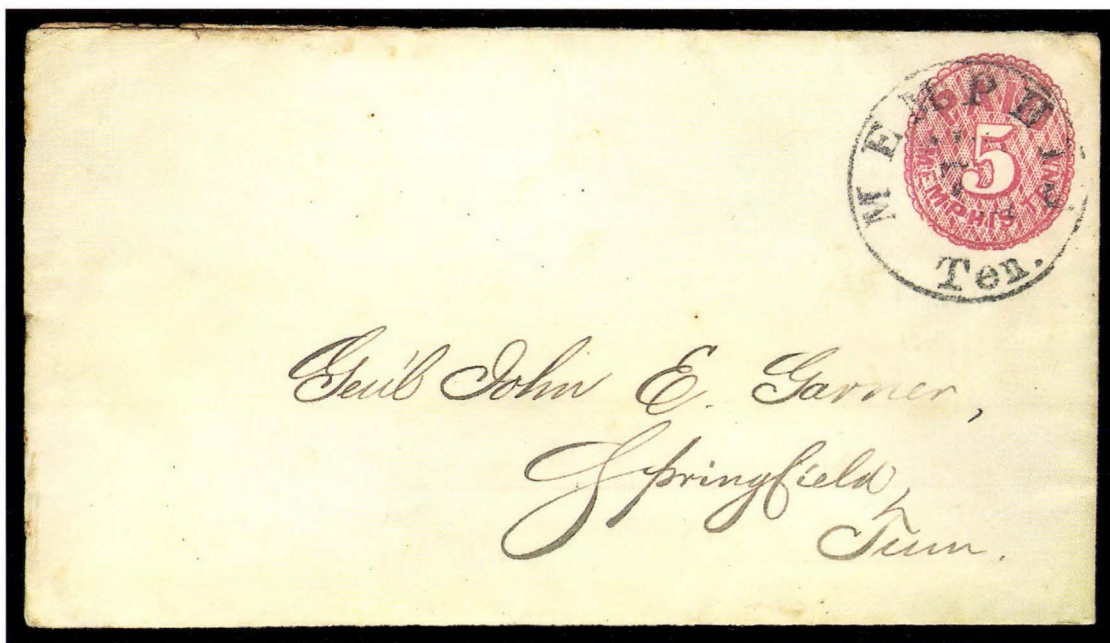 PAID
5
MEMPHIS TENN
MEMPHIS
Ten.
Gen'l John E. Garner,
Springfield,
Tenn.